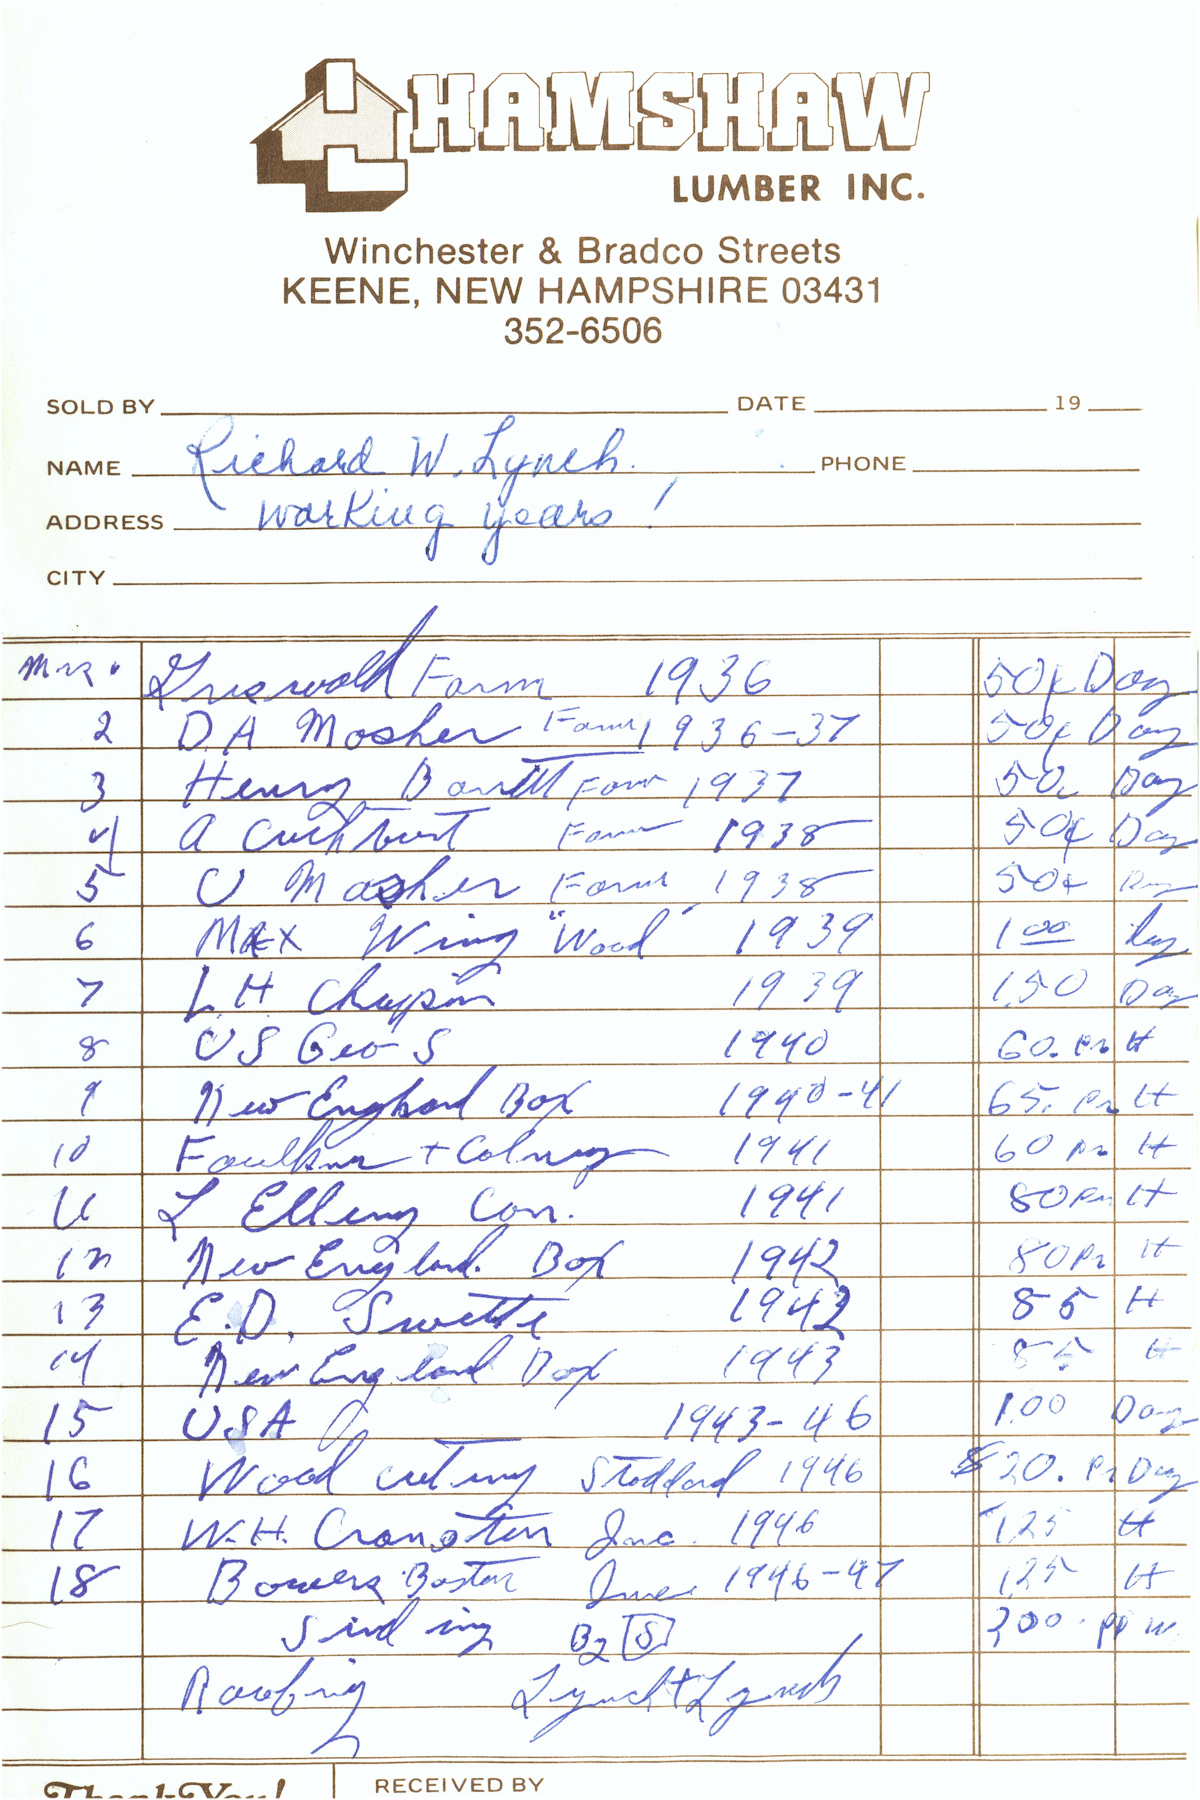 HAMSHAW
LUMBER INC.
Winchester & Bradco Streets
KEENE, NEW HAMPSHIRE 03431
352-6506
SOLD BY DATE 19
NAME Richard W. Lynch. PHONE
ADDRESS working years!
CITY
Griswold Farm 1936 50¢ Day
2 D.A Mosher Farm 1936-37 50¢ Day
3 Henry Barrett Farm 1937 50¢ Day
4 A Farm 1938 50¢ Day
5 U Mosher Farm 1938 50¢ Day
6 Max Wing "Wood" 1939 1.00 Day
7 L.H Chapin 1939 1.50 Day
8 US Geo S 1940 60. Pr H
9 New England Box 1940-41 65. Pr H
10 Faulkner + Colony 1941 60 Pr H
11 L Con. 1941 80 Pr H
12 New England Box 1942 80 Pr H
13 E.D. 1942 85 H
14 New England Box 1943 85 H
15 USA 1943-46 1.00 Day
16 Wood cuting Stoddard 1946 $20. Pr Day
17 W.H. Cranston Inc. 1946 1.25 H
18 Boston Inc 1946-47 1.25 H
B2 S
Roofing Lynch + Lynch
Thank You!
RECEIVED BY